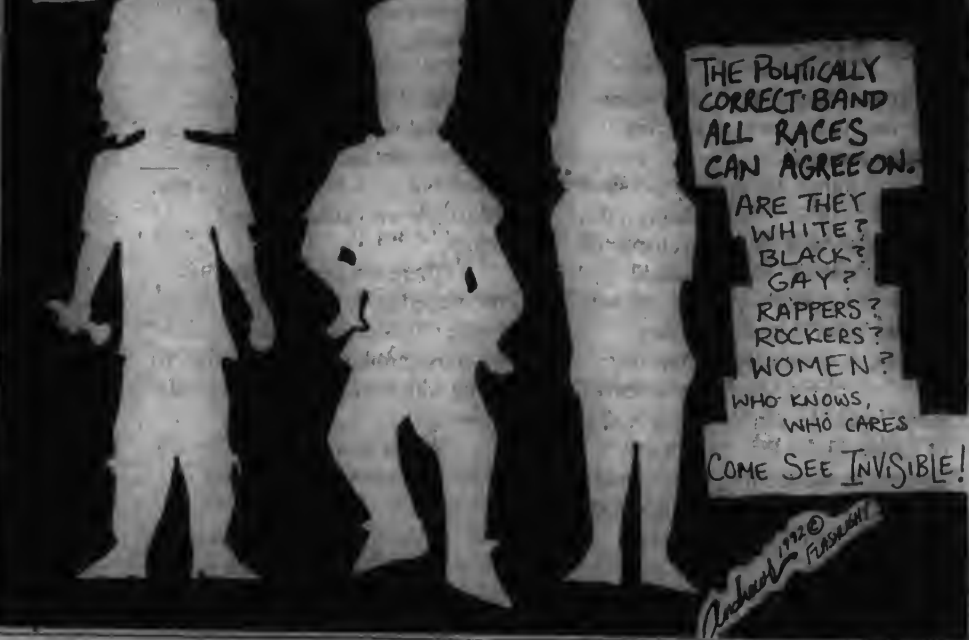 THE POLITICALLY
CORRECT BAND
ALL RACES
CAN AGREE ON.
ARE THEY
WHITE?
BLACK?
GAY?
RAPPERS?
ROCKERS?
WOMEN?
WHO KNOWS,
WHO CARES
COME SEE INVISIBLE!
1992 ©
FLASHLIGHT